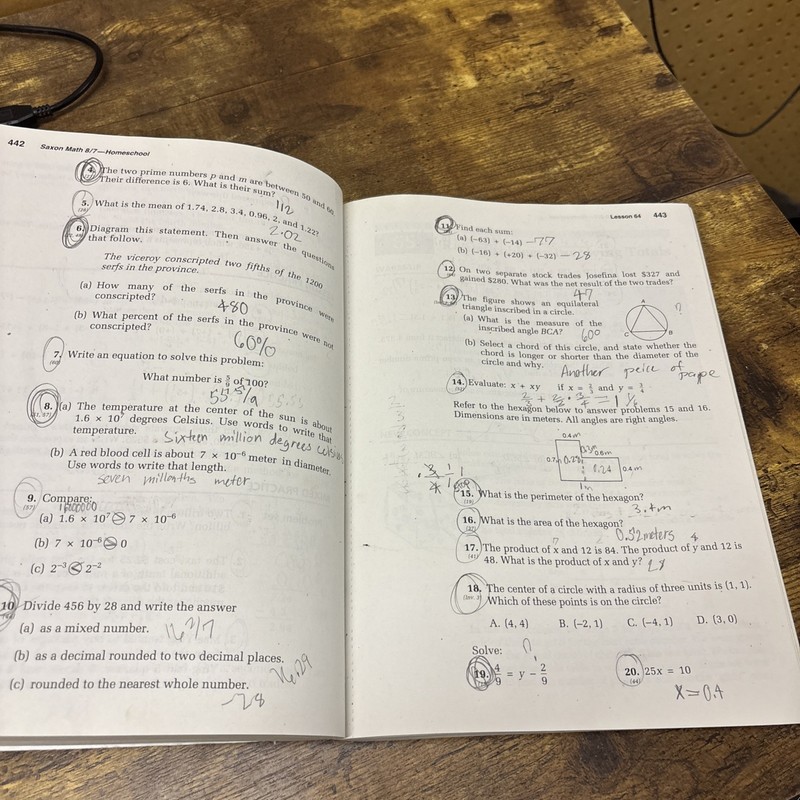 442 Saxon Math 8/7—Homeschool
4. The two prime numbers p and m are between 50 and 60.
Their difference is 6. What is their sum?
112
5. What is the mean of 1.74, 2.8, 3.4, 0.96, 2, and 1.22?
2.02
6. Diagram this statement. Then answer the questions
that follow.
The viceroy conscripted two fifths of the 1200
serfs in the province.
(a) How many of the serfs in the province were
conscripted?
480
(b) What percent of the serfs in the province were not
conscripted?
60%
7. Write an equation to solve this problem:
What number is 5/9 of 100?
55 5/9
8. (a) The temperature at the center of the sun is about
1.6 × 10⁷ degrees Celsius. Use words to write that
temperature.
Sixteen million degrees celsius
(b) A red blood cell is about 7 × 10⁻⁶ meter in diameter.
Use words to write that length.
seven millonths meter
9. Compare:
16000000
(a) 1.6 × 10⁷ > 7 × 10⁻⁶
(b) 7 × 10⁻⁶ > 0
(c) 2⁻³ < 2⁻²
10. Divide 456 by 28 and write the answer
(a) as a mixed number. 16 2/7
(b) as a decimal rounded to two decimal places.
16.29
(c) rounded to the nearest whole number.
Lesson 64 443
11. Find each sum:
(a) (−63) + (−14) −77
(b) (−16) + (+20) + (−32) −28
12. On two separate stock trades Josefina lost $327 and
gained $280. What was the net result of the two trades?
47
13. The figure shows an equilateral
triangle inscribed in a circle.
(a) What is the measure of the
inscribed angle BCA?
60°
A
C B
?
(b) Select a chord of this circle, and state whether the
chord is longer or shorter than the diameter of the
circle and why.
Another peice of pape
14. Evaluate: x + xy if x = 2/3 and y = 3/4
2/3 + 2/3 · 3/4 = 1 1/6
Refer to the hexagon below to answer problems 15 and 16.
Dimensions are in meters. All angles are right angles.
0.4m
0.6m
0.7m
0.28
0.24
0.4m
1m
15. What is the perimeter of the hexagon?
3.4m
16. What is the area of the hexagon?
0.52meters
17. The product of x and 12 is 84. The product of y and 12 is
48. What is the product of x and y? 28
7
4
18. The center of a circle with a radius of three units is (1, 1).
Which of these points is on the circle?
A. (4, 4) B. (−2, 1) C. (−4, 1) D. (3, 0)
Solve:
19. 4/9 = y − 2/9
20. 25x = 10
x=0.4